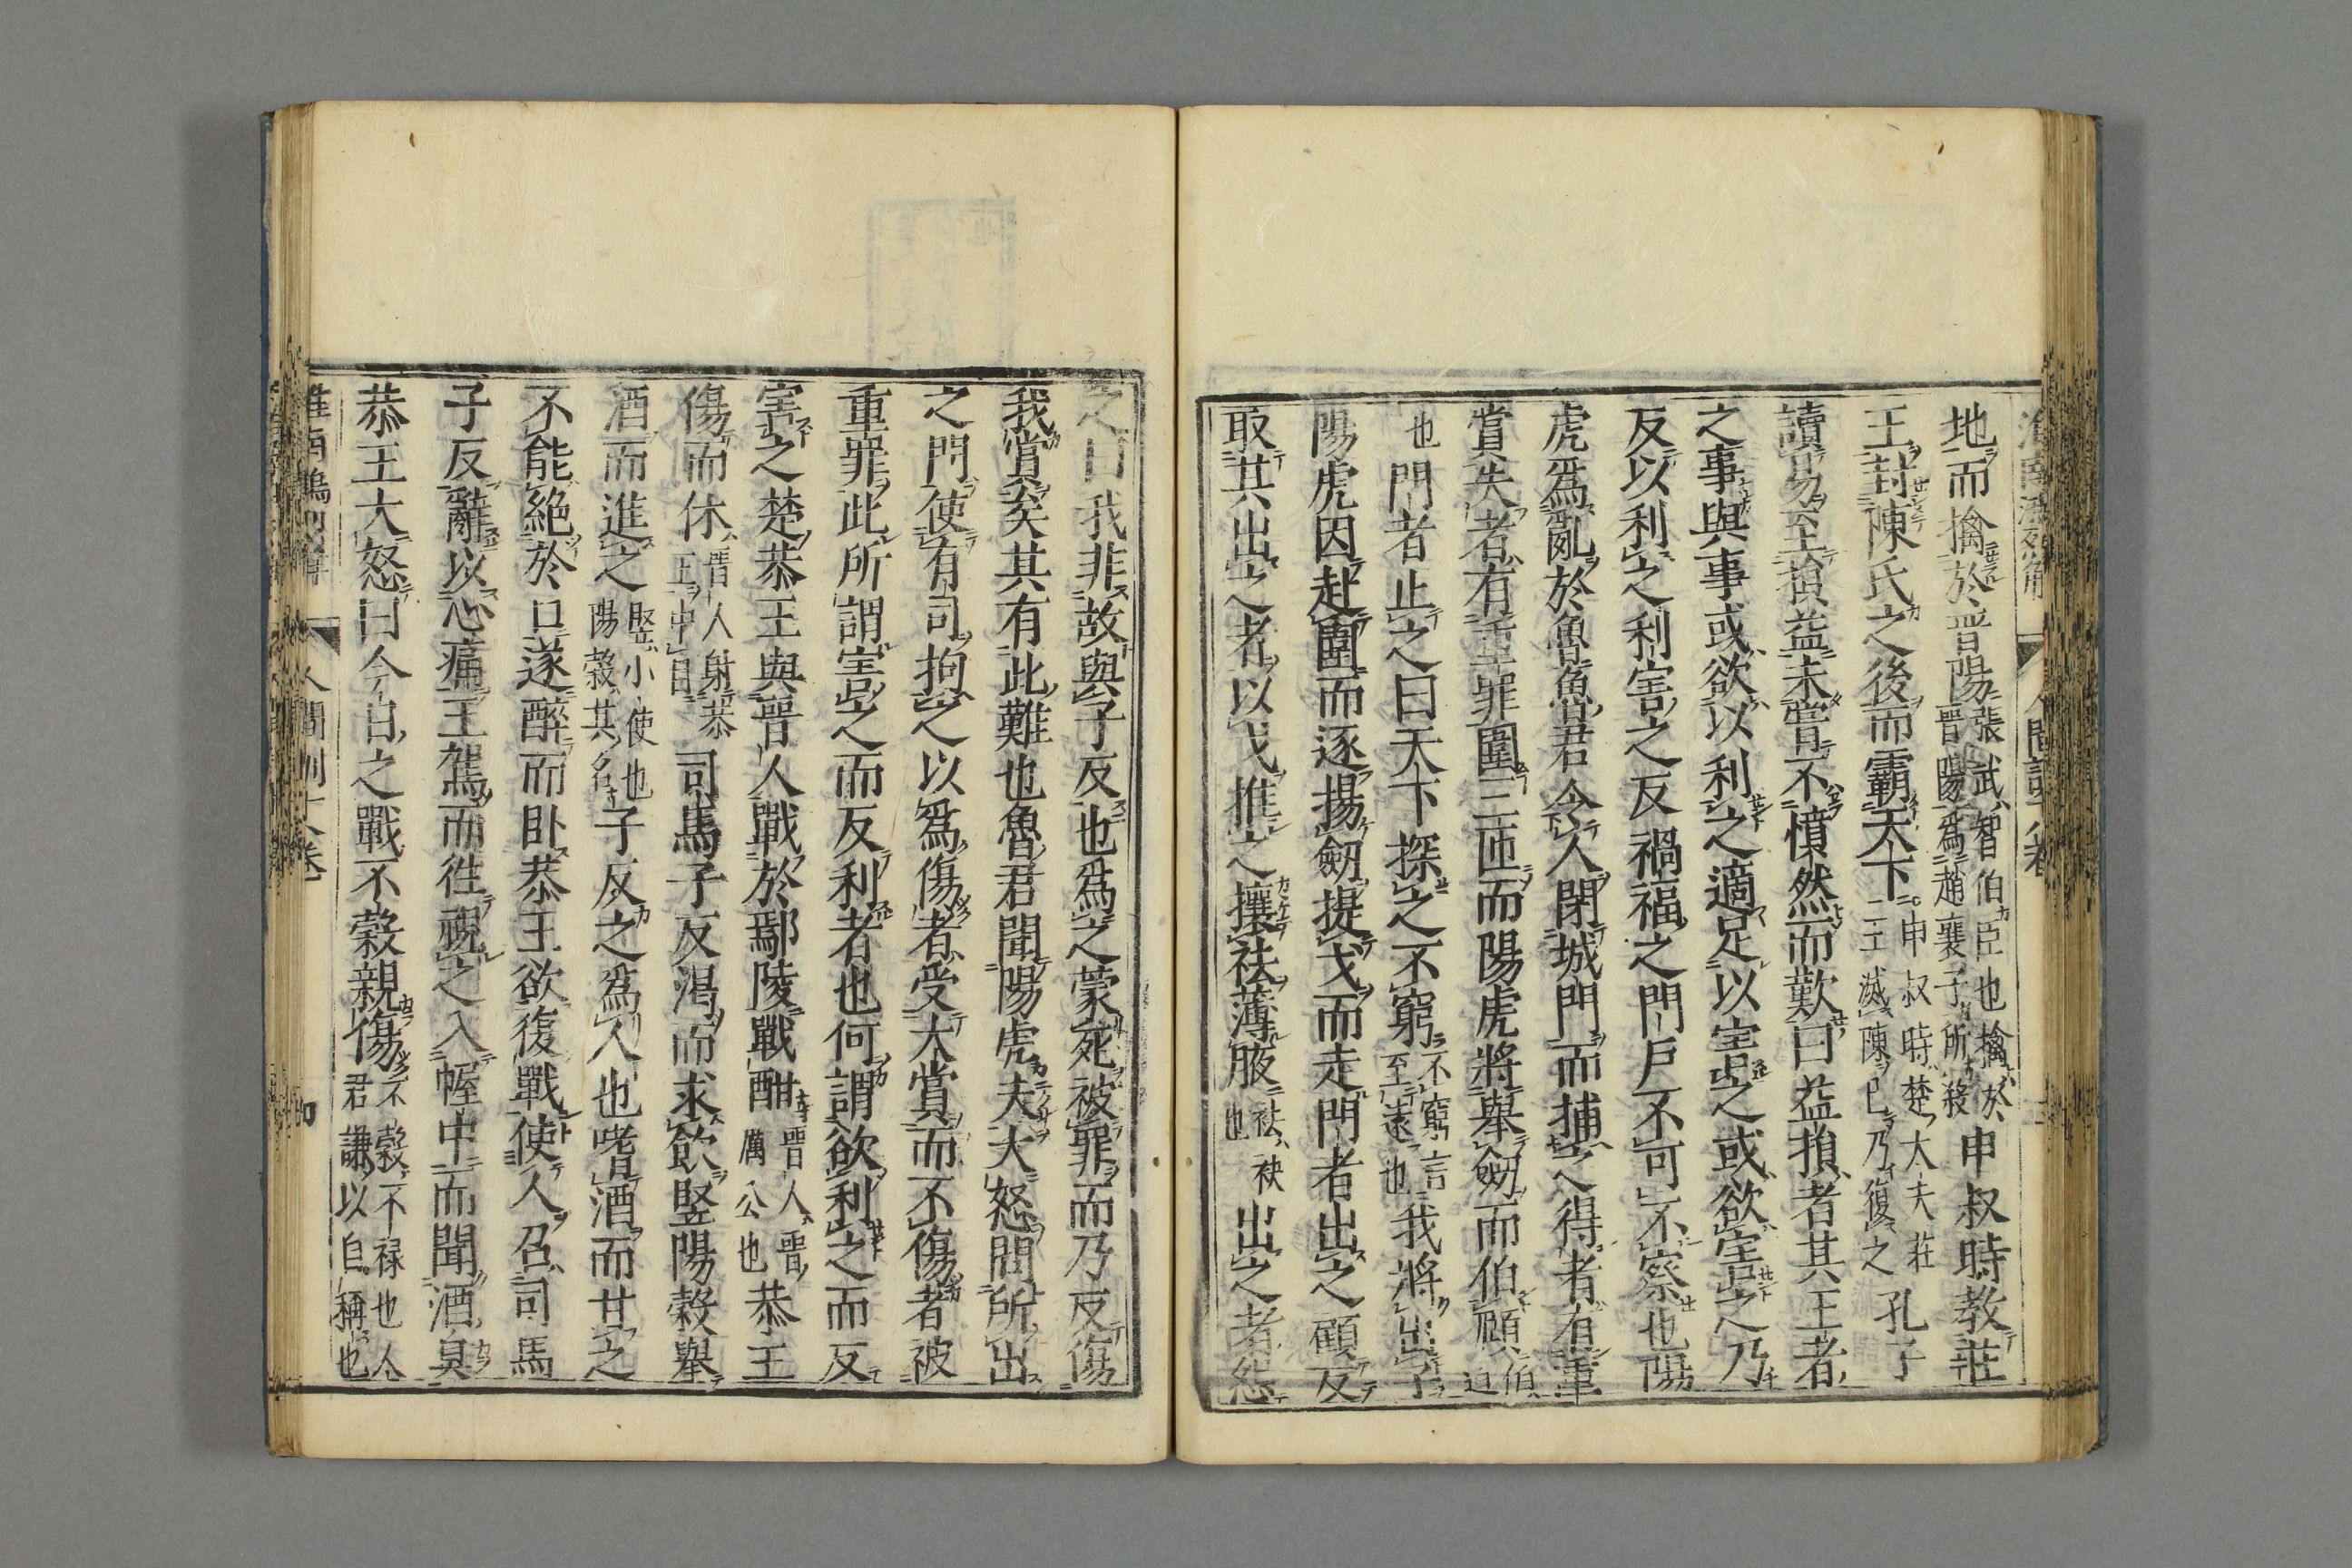 地而擒於晋陽張武智伯臣也擒於晋陽爲趙襄子所殺申叔時教莊
王封陳氏之後而霸天下申叔時楚大夫莊王滅陳已乃復之孔子
讀易至損益未嘗不憤然而歎曰益損者其王者
之事與事或欲以利之適足以害之或欲害之乃
反以利之利害之反禍福之門戶不可不察也陽
虎爲亂於魯魯君令人閉城門而捕之得者有重
賞失者有重罪圍三匝而陽虎將舉劒而伯頤伯迫
也門者止之曰天下探之不窮不窮言至遠也我將出子
陽虎因赴圍而逐揚劒提戈而走門者出之顧反
取其出之者以戈推之攘袪薄腋袪袂也出之者怨
之曰我非故與子反也爲之蒙死被罪而乃反傷
我賞矣其有此難也魯君聞陽虎夫大怒問所出
之門使有司拘之以爲傷者受大賞而不傷者被
重罪此所謂害之而反利者也何謂欲利之而反
害之楚恭王與晉人戰於鄢陵戰酣晉人晉厲公也恭王
傷而休晉人射恭王中目司馬子反渴而求飲竪陽穀舉
酒而進之竪小使也陽穀其名子反之爲人也嗜酒而甘之
不能絕於口遂醉而卧恭王欲復戰使人召司馬
子反辭以心痛王駕而徃視之入幄中而聞酒臭
恭王大怒曰今日之戰不穀親傷不穀不禄也人君謙以自稱也
人間訓十八卷